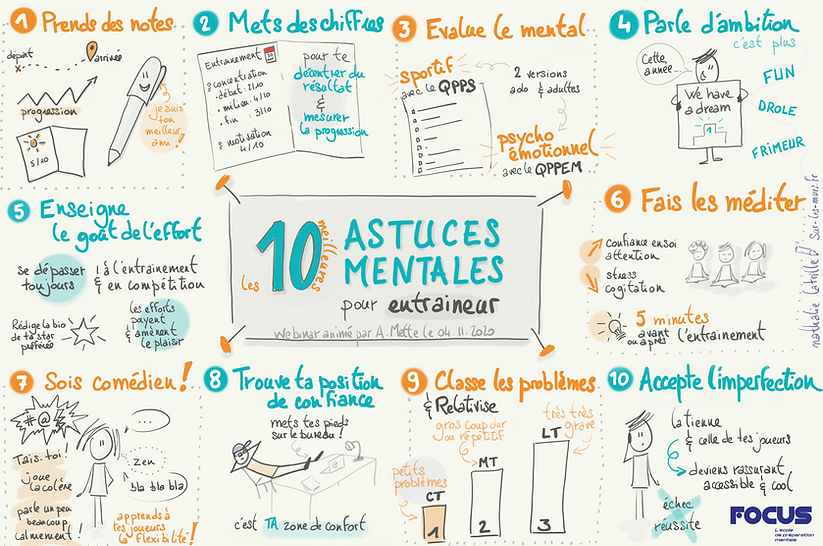 1 Prends des notes
départ
arrivée
progression
5/10
je suis
ton
meilleur
ami !
2 Mets des chiffres
Entrainement
concentration
. début : 2/10
. milieu : 4/10
. fin : 3/10
motivation
4/10
pour te
décentrer du
résultat
&
mesurer
la progression
3 Evalue le mental
sportif
avec le QPPS
2 versions
ado & adultes
psycho
émotionnel
avec le QPPEM
4 Parle d'ambition
c'est plus
Cette
année...
We have
a dream
1
FUN
DROLE
FRIMEUR
5 Enseigne
le goût de l'effort
se dépasser
toujours
à l'entrainement
& en compétition
Rédige la bio
de ta star
préférée
les efforts
payent
& amènent
le plaisir
les 10 meilleures
ASTUCES
MENTALES
pour entraineur
Webinar animé par A. Mette le 04.11.2020
6 Fais les méditer
confiance en soi
attention
stress
cogitation
5 minutes
avant
ou après l'entrainement
nathalie Latrille Sur-les-murs.fr
7 Sois comédien !
#@!
...
Tais-toi !
joue
la colère
zen
bla bla bla
parle un peu
beaucoup
calmement !
apprends à
tes joueurs
la flexibilité !
8 Trouve ta position
de confiance
mets tes pieds
sur le bureau !
c'est TA zone de confort
9 Classe les problèmes
& Relativise
gros coup dur
ou répétitif
très très
grave
petits
problèmes
CT
MT
LT
1
2
3
10 Accepte l'imperfection
la tienne
& celle de tes joueurs
deviens rassurant
accessible & cool
échec
réussite
FOCUS
L'école
de préparation
mentale